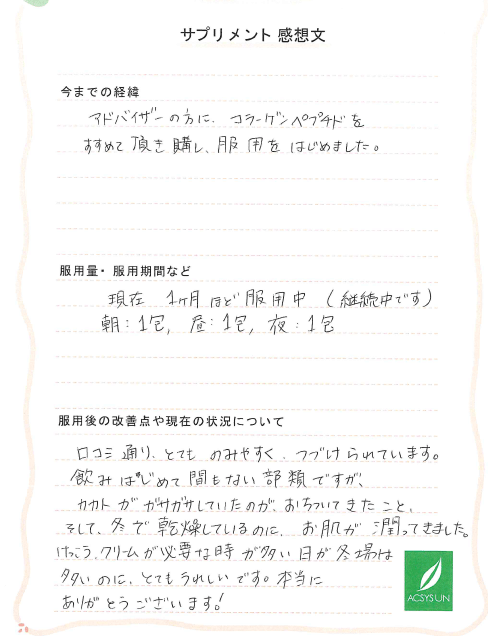 サプリメント 感想文
今までの経緯
アドバイザーの方に、コラーゲンペプチドを
すすめて頂き購し、服用をはじめました。
服用量・服用期間など
現在 1ヶ月ほど服用中 (継続中です)
朝:1包, 昼:1包, 夜:1包
服用後の改善点や現在の状況について
口コミ通り、とてものみやすく、つづけられています。
飲みはじめて間もない部類ですが、
カカトがガサガサしていたのが、おちついてきたこと、
そして、冬で乾燥しているのに、お肌が潤ってきました。
けっこう、クリームが必要な時が多い日が冬場は
多いのに、とてもうれしいです。本当に
ありがとうございます!
ACSYSUN